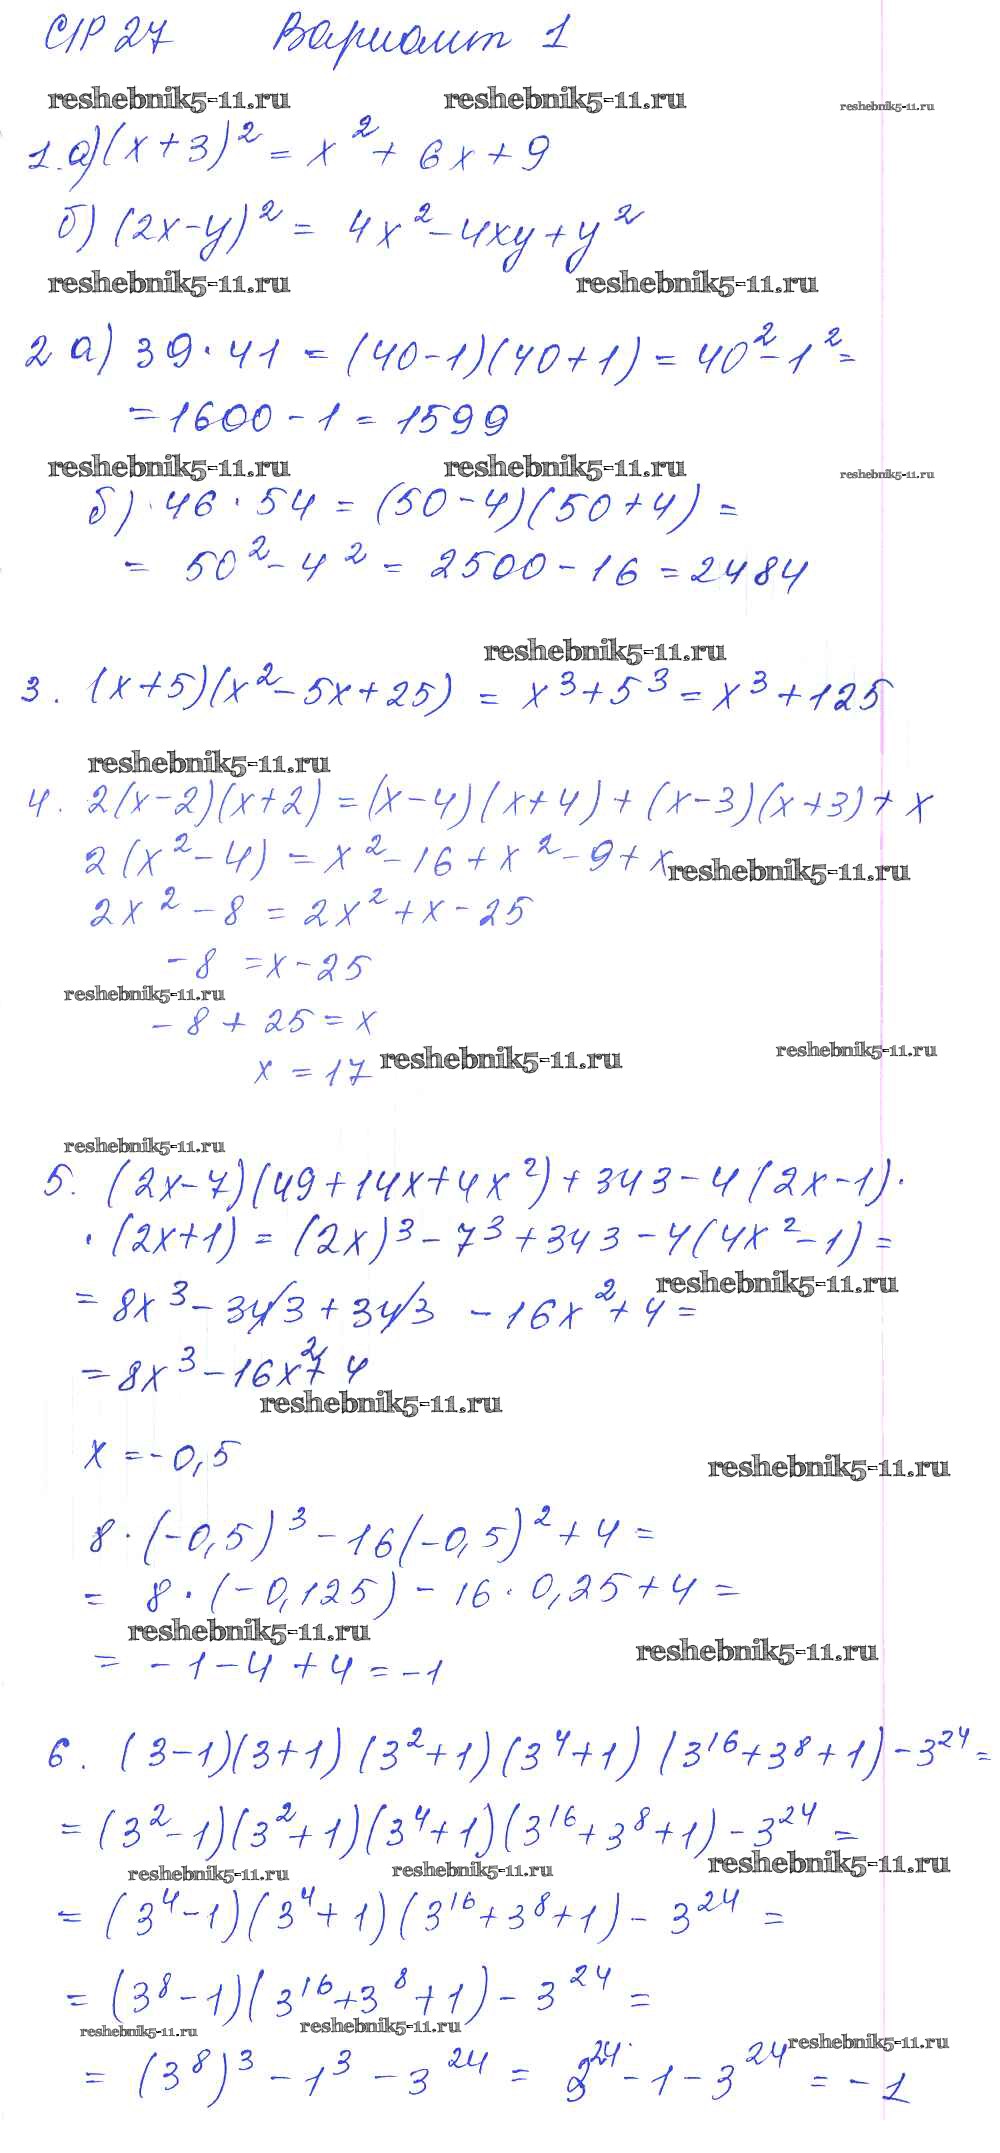 С/Р 27 Вариант 1
reshebnik5-11.ru reshebnik5-11.ru reshebnik5-11.ru
1. а) (x+3)² = x² + 6x + 9
б) (2x-y)² = 4x² - 4xy + y²
reshebnik5-11.ru reshebnik5-11.ru
2 а) 39·41 = (40-1)(40+1) = 40²-1² =
= 1600 - 1 = 1599
reshebnik5-11.ru reshebnik5-11.ru reshebnik5-11.ru
б) 46·54 = (50-4)(50+4) =
= 50² - 4² = 2500 - 16 = 2484
reshebnik5-11.ru
3. (x+5)(x²-5x+25) = x³+5³ = x³+125
reshebnik5-11.ru
4. 2(x-2)(x+2) = (x-4)(x+4)+(x-3)(x+3)+x
2(x²-4) = x²-16+x²-9+x
reshebnik5-11.ru
2x²-8 = 2x²+x-25
-8 = x-25
reshebnik5-11.ru
-8+25 = x
reshebnik5-11.ru reshebnik5-11.ru
x = 17
reshebnik5-11.ru
5. (2x-7)(49+14x+4x²)+343-4(2x-1)·
·(2x+1) = (2x)³-7³+343-4(4x²-1) =
reshebnik5-11.ru
= 8x³-343+343 -16x²+4 =
= 8x³-16x²+4
reshebnik5-11.ru
x = -0,5
reshebnik5-11.ru
8·(-0,5)³-16(-0,5)²+4 =
= 8·(-0,125)-16·0,25+4 =
reshebnik5-11.ru reshebnik5-11.ru
= -1-4+4 = -1
6. (3-1)(3+1)(3²+1)(3⁴+1)(3¹⁶+3⁸+1)-3²⁴ =
= (3²-1)(3²+1)(3⁴+1)(3¹⁶+3⁸+1)-3²⁴ =
reshebnik5-11.ru reshebnik5-11.ru reshebnik5-11.ru
= (3⁴-1)(3⁴+1)(3¹⁶+3⁸+1)-3²⁴ =
= (3⁸-1)(3¹⁶+3⁸+1)-3²⁴ =
reshebnik5-11.ru reshebnik5-11.ru reshebnik5-11.ru
= (3⁸)³-1³-3²⁴ = 3²⁴-1-3²⁴ = -1